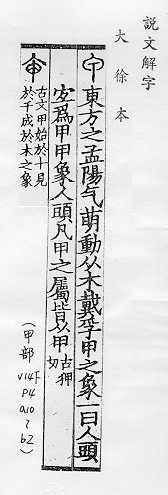 説文解字
大徐本
東方之孟陽气萌動从木戴孚甲之象一曰人頭
宐爲甲甲象人頭凡甲之屬皆从甲
古狎
切
古文甲始於十見
於千成於木之象
(甲部 v14下 P4 a10~b2)